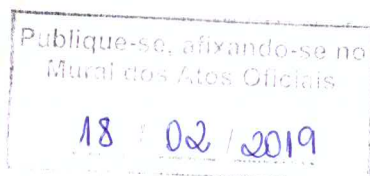 Publique-se, afixando-se no
Mural dos Atos Oficiais
18 / 02 / 2019